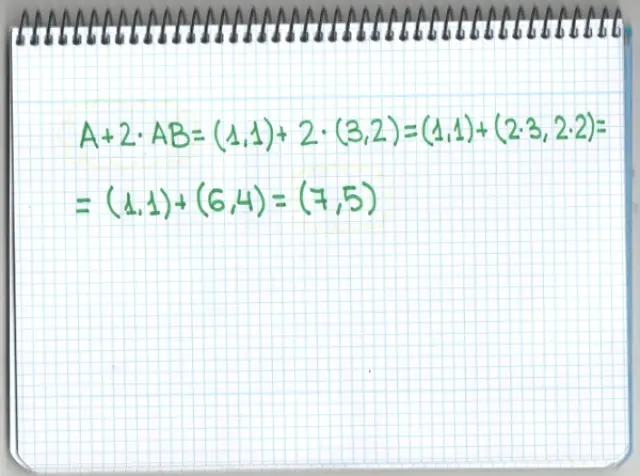 A+2· AB= (1,1)+ 2·(3,2)=(1,1)+(2·3, 2·2)=
= (1,1)+(6,4)= (7,5)